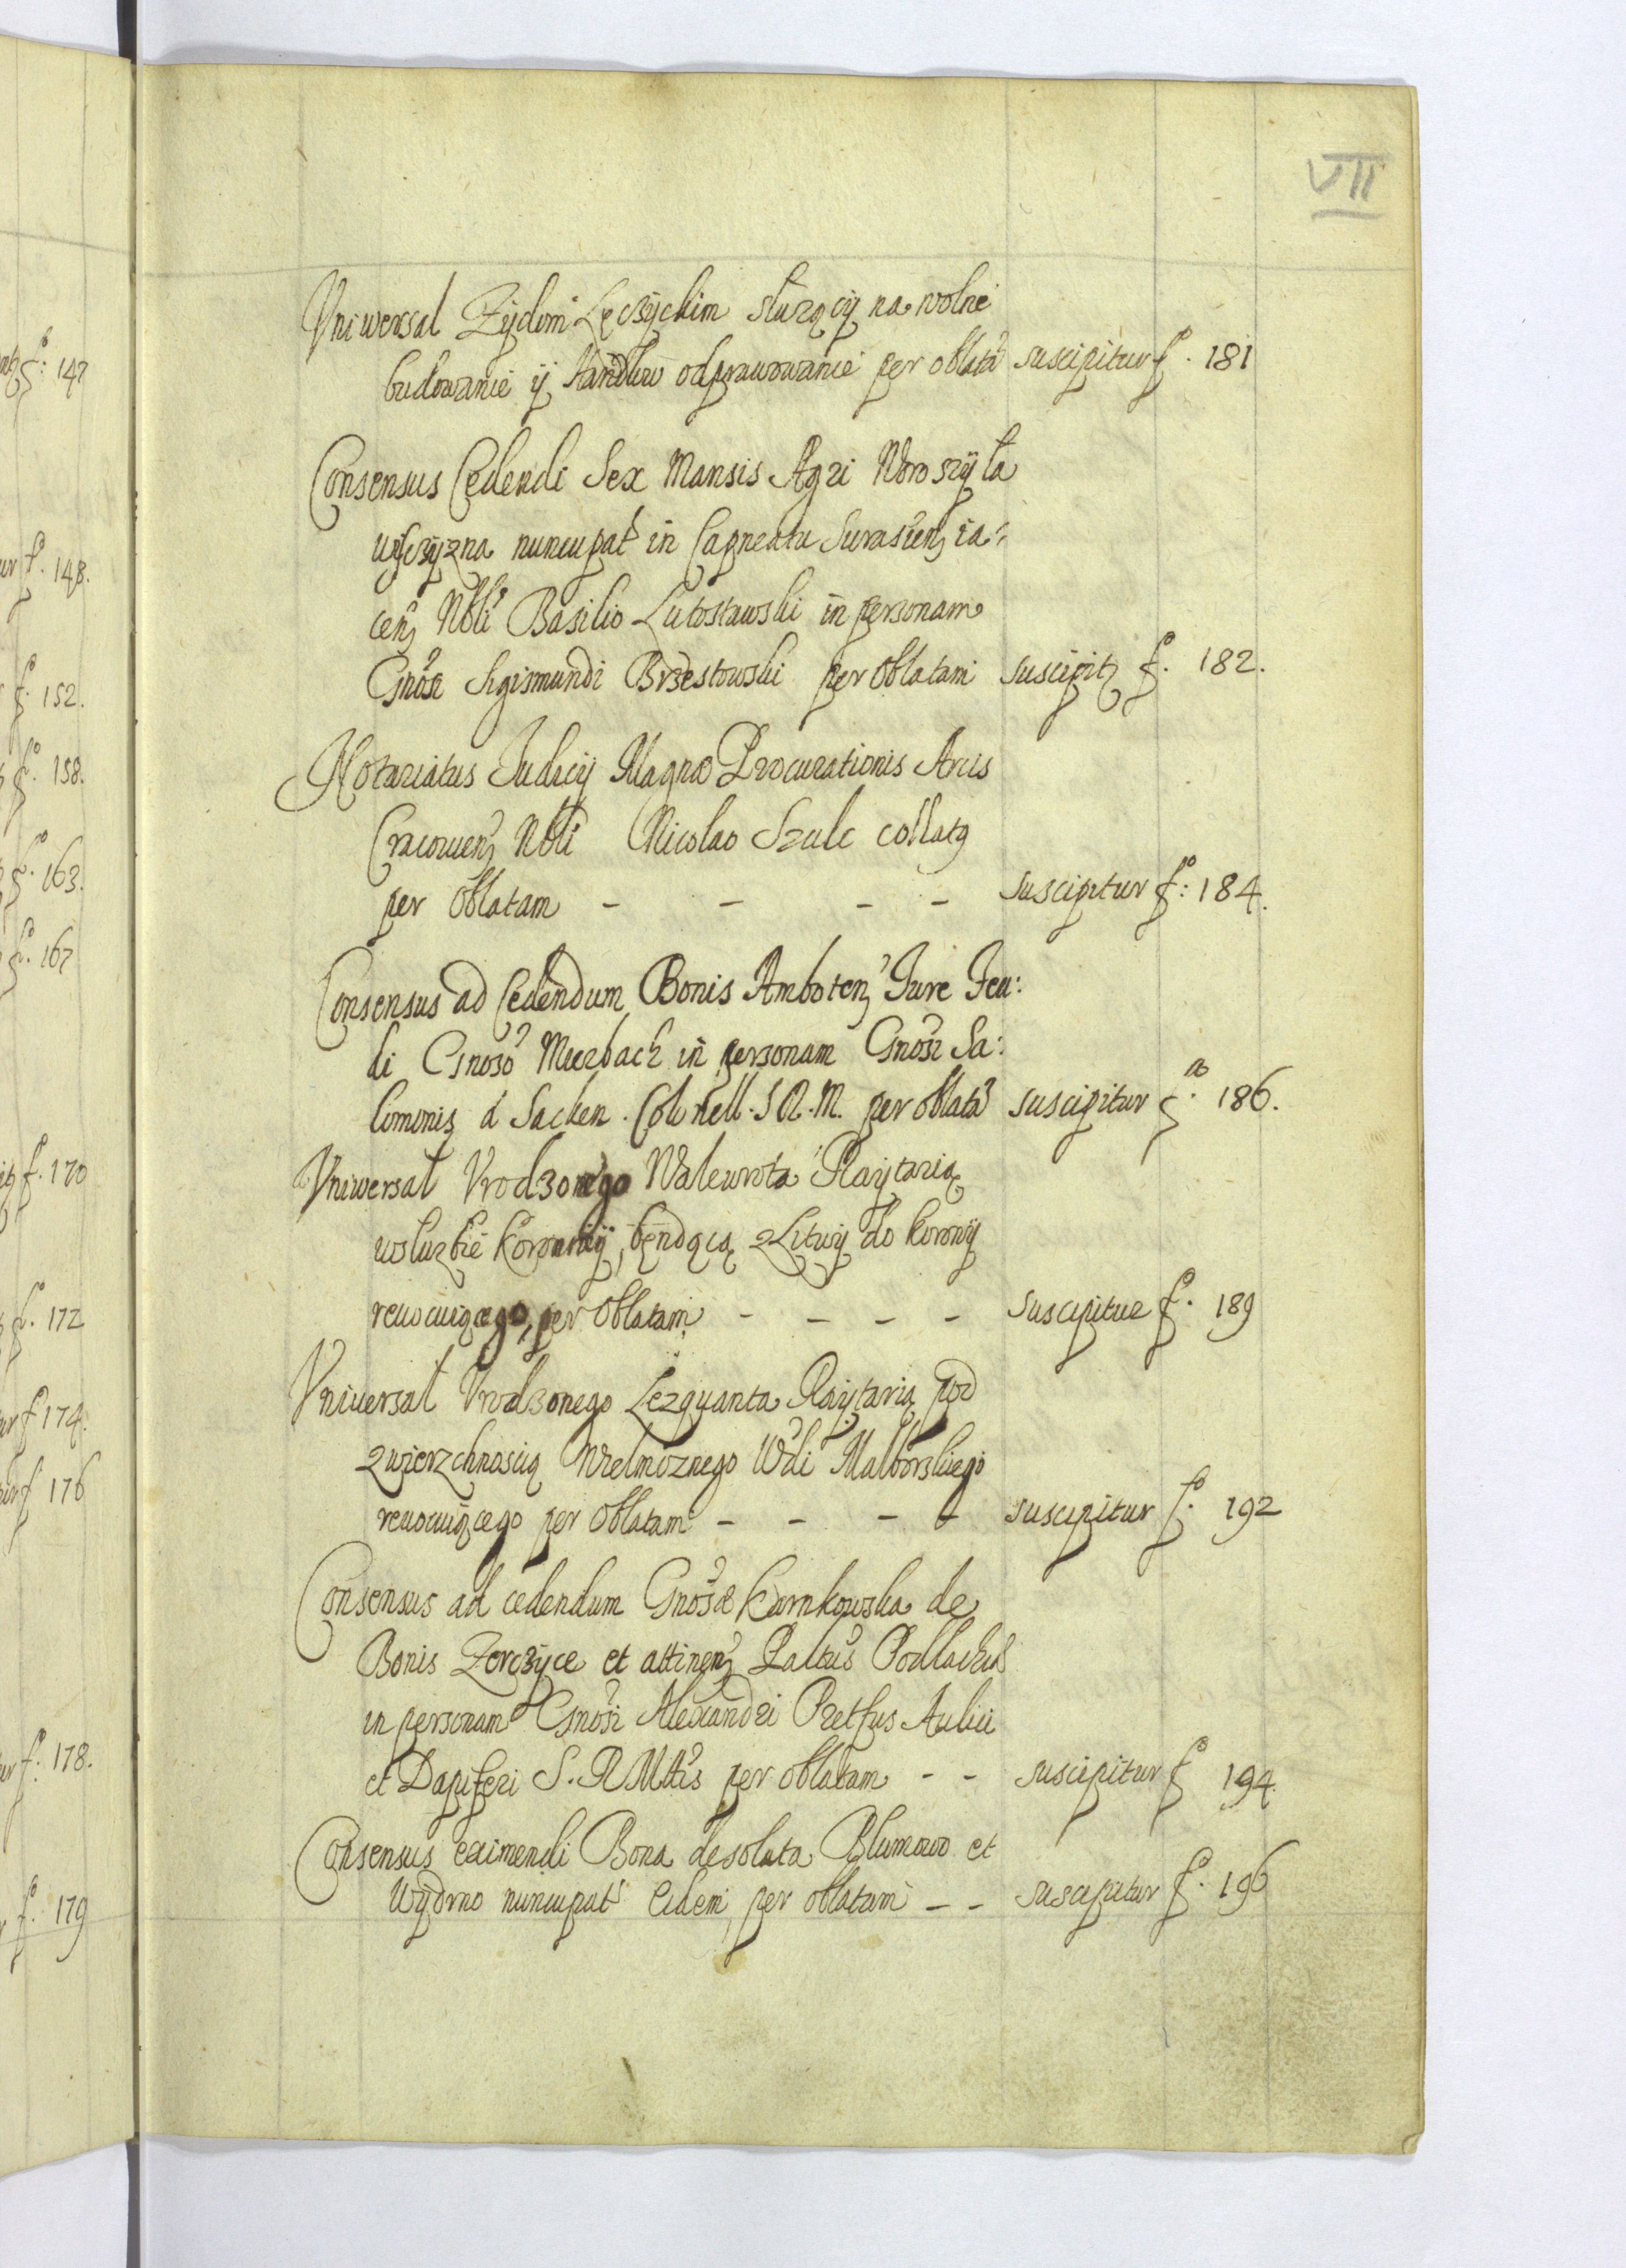 VII
Vniwersał Zydom Łęczyckim słuzący na wolne
budowanie y Handlow odprawowanie per oblatã suscipitur fº. 181
Consensus Cedendi Sex Mansis Agri Woroszyła
wsczyzna nuncupat in Capneatu Surasien ia:
cen Nbli Basilio Lutostawski in personam
Gnosi Sigismundi Brzestowski per Oblatam suscipit fº. 182.
Notariatus Judicij Magnæ Procurationis Arcis
Cracovien Nbli Nicolao Szulc collatq
per Oblatam - - - - suscipitur fº: 184.
Consensus ad Cedendum Bonis Amboten Jure Feu:
di Gnoso Mierbach in personam Gnosi Sa:
lomonis d Sacken. Colonell. S R. M. per oblatã suscipitur fº. 186.
Vniwersał Vrodzonego Walewrota Raytarią
wsłuzbie Koronney, będącą z Litwy do korony
reuocuiącego, per Oblatam - - - - suscipitur fº. 189
Vniuersał Vrodzonego Lezquanta Raytarią pod
zwierzchnoscią Wielmoznego Wdi Malborskiego
reuocuiącego per Oblatam - - - - suscipitur fº. 192
Consensus ad cedendum Gnosæ Karnkowska de
Bonis Zerczyce et attinen Paltus Podlachiæ
in personam Gnosi Alexandri Pretfus Aulici
et Dapiferi S. R Mttis per oblatam - - suscipitur fº 194.
Consensus eximendi Bona desolata Blumowo et
Wydrno nuncupat Eidem per oblatam - - suscipitur fº. 196
fº: 147
fº. 148.
fº. 152.
fº. 158.
fº. 163.
fº. 167
fº. 170
fº. 172
f 174.
f 176
fº. 178.
fº. 179